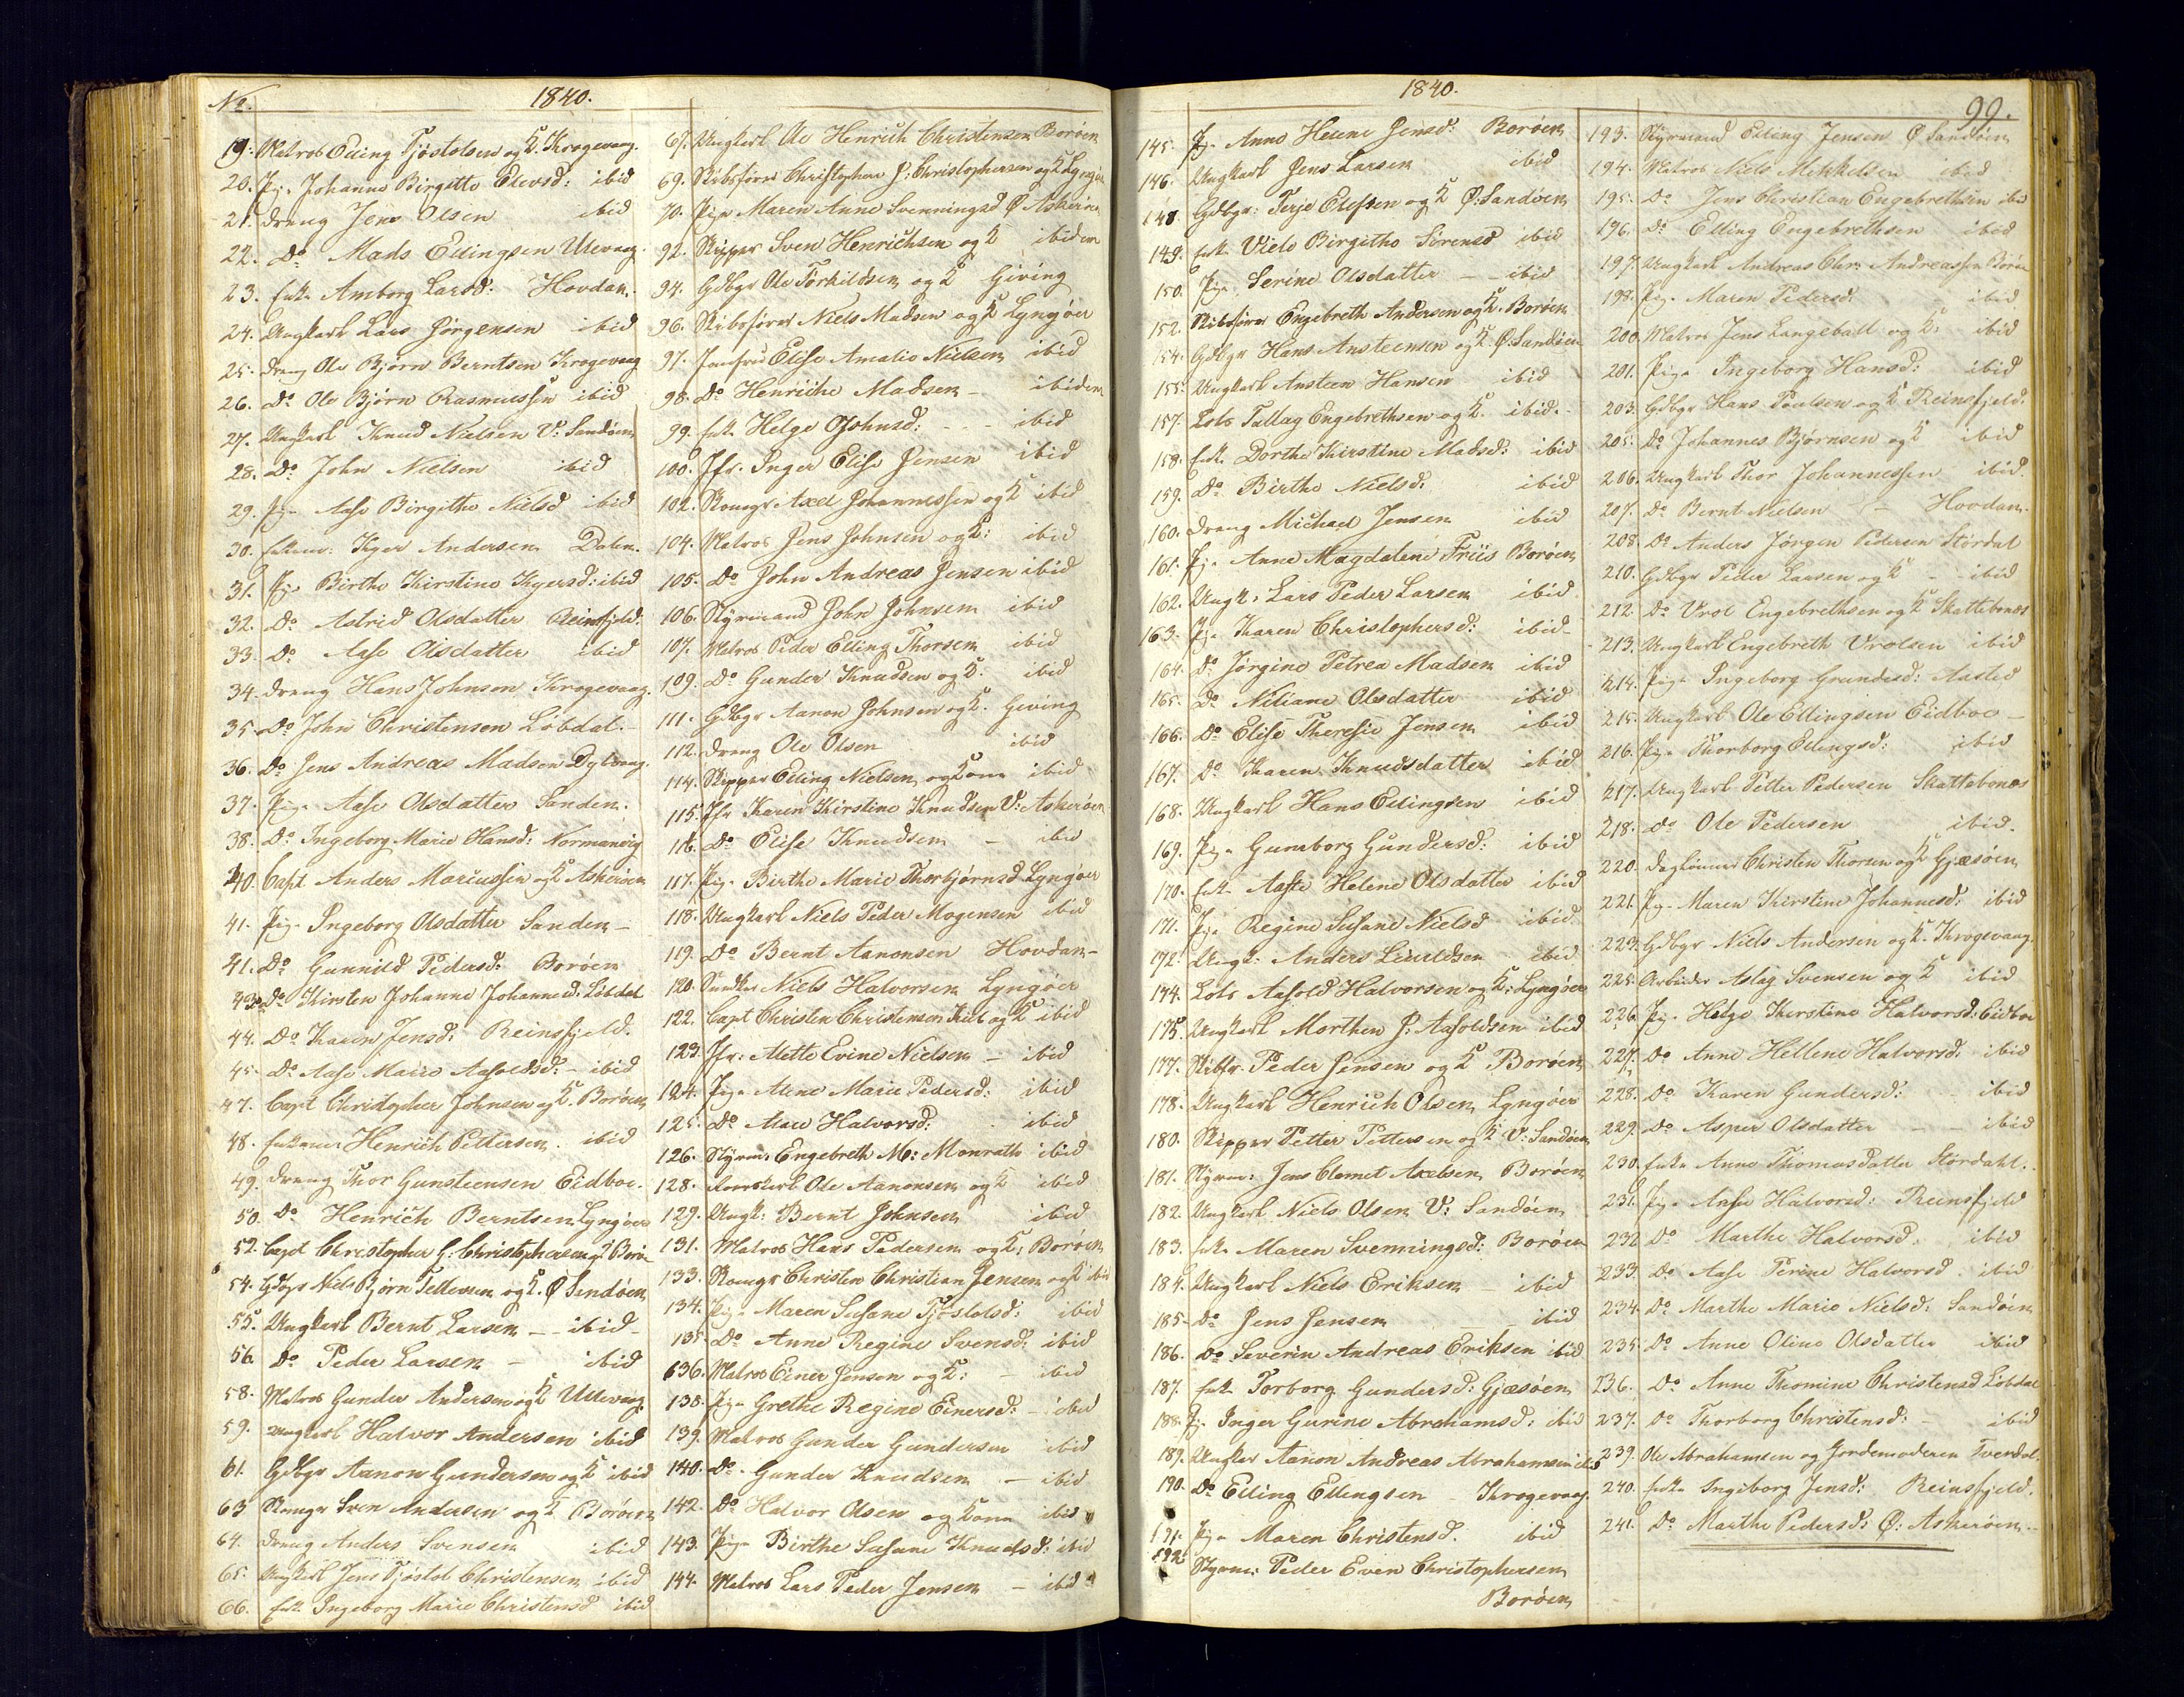 No.
1840.
19. Matros Elling Tjøstolsen og K. Krogevaag.
20. Pige Johanne Birgitte Elevsd: ibid
21. Dreng Jens Olsen ibid
22. Do Mads Ellingsen Utevaag.
23. Enke Amborg Larsd: Hovdan.
24. Ungkarl Lars Jørgensen ibid
25. Dreng Ole Bjørn Berntsen Krogevaag
26. Do Ole Bjørn Rasmussen ibid
27. Ungkarl Knud Nielsen V: Sandøen
28. Do John Nielsen ibid
29. Pige Aase Birgithe Nielsd ibid
30. Enkem: Kger Andersen Dalen.
31. Pige Birthe Kirstine Kgersd: ibid
32. Do Astrid Olsdatter Reinsfjeld.
33. Do Aase Olsdatter ibid
34. Dreng Hans Johnsen Krogevaag.
35. Do John Christensen Löbdal.
36. Do Jens Andreas Madsen Dybvaag.
37. Pige Aase Olsdatter Sanden.
38. Do Ingeborg Marie Hansd: Normandvig
40. Capt Anders Mariussen og K Askerøen
41. Pige Ingeborg Olsdatter Sanden
41. Do Gunnild Pedersd: Borøen
43. Do Kirsten Johanne Johannesd: Löbdal
44. Do Karen Jensd: Reinsfjeld.
45. Do Aase Marie Aasoldsd: ibid
47. Capt Christopher Johnsen og K. Borøen
48. Enkem Henrich Pettersen ibid
49. Dreng Thor Gunsteensen Eidboe.
50. Do Henrich Berntsen Lyngøer
52. Capt Christopher G: Christophersen og K Borø
54. Gdbgr Niels Bjørn Tellevsen og K. Ø Sandøen
55. Ungkarl Bernt Larsen ibid
56. Do Peder Larsen ibid
58. Matros Gunder Andersen og K Utevaag.
59. Ungkarl Halvor Andersen ibid
61. Gdbgr Aanon Gundersen og K ibid
63 Sven Andersen og K Borøen
64. Dreng Anders Svensen ibid
65. Ungkarl Jens Tjøstol Christensen ibid
66. Enke Ingeborg Marie Christensd ibid
67. Ungkarl Ole Henrich Christensen Borøen
69. Skibsfører Christopher J: Christophersen og K Lyngøer
70. Pige Maren Anne Svenningsd Ø Askerøen
92. Skipper Sven Henrichsen og K ibidem
94. Gdbgr Ole Torkildsen og K Giving
96. Skibsfører Niels Madsen og K Lyngøer
97. Jomfrue Elise Amalie Nielsen ibid
98. Do Henriche Madsen ibidem
99. Enke Helge Johnsd: ibid
100. Jfr. Inger Elise Jensen ibid
102. Axel Johannessen og K ibid
104. Matros Jens Johnsen og K: ibid
105. Do John Andreas Jensen ibid
106. Styrmand John Johnsen ibid
107. Matros Peder Elling Thorsen ibid
109. Do Gunder Knudsen og K. ibid
111. Gdbgr Aanon Johnsen og K. Giving
112. Dreng Ole Olsen ibid
114. Skipper Elling Nielsen og Kone ibid
115. Jfr Karen Kirstine Knudsen V: Askerøen
116. Do Elise Knudsen ibid
117. Pige Birthe Marie Thorbjørnsd Lyngøer
118. Ungkarl Niels Peder Mogensen ibid
119. Do Bernt Aanonsen Hovdan
120. Niels Halvorsen Lyngøer
122. Capt Christen Christensen og K ibid
123. Jfr: Mette Evine Nielsen ibid
124. Pige Alene Marie Pedersd: ibid
125. Do Maren Halvorsd: ibid
126. Styrm: Engebreth M: Monrath ibid
128. Ole Aanonsen og K ibid
129. Ungk: Bernt Johnsen ibid
131. Matros Hans Pedersen og K: Borøen
133. Christen Christian Jensen og K ibid
134. Pige Maren Susane Tjøstolsd: ibid
135 Do Anne Regine Svensd: ibid
136. Matros Einer Jensen og K: ibid
138. Pige Grethe Regine Einersd: ibid
139. Matros Gunder Gundersen ibid
140. Do Gunder Knudsen ibid
142. Do Halvor Olsen og Kone ibid
143. Pige Birthe Susane Knudsd: ibid
144. Matros Lars Peder Jensen ibid
1840.
99.
145. Pige Anne Helene Jensd: Borøen
146. Ungkarl Jens Larsen ibid
148. Gdbgr: Terje Elefsen og K Ø: Sandøen
149. Enke Viele Birgithe Sörensd ibid
150. Pige Serine Olsdatter ibid
152. Skibsfører Engebreth Andersen og K. Borøen
154. Gdbgr Hans Ansteensen og K. Ø. Sandøen
155. Ungkarl Ansteen Hansen ibid
157. Lods Tallag Engebrethsen og K. ibid.
158. Enke Dorthe Kirstine Madsd: ibid
159. Do Birthe Nielsd: ibid
160. Dreng Michael Jensen ibid
161. Pige Anne Magdalene Friis Borøen
162. Ungk: Lars Peder Larsen ibid
163. Pige Karen Christophersd: ibid
164. Do Jørgine Petrea Madsen ibid
165. Do Niliane Olsdatter ibid
166. Do Elise Theresie Jensen ibid
167. Do Karen Knudsdatter ibid
168. Ungkarl Hans Ellingsen ibid
169. Pige Gunborg Gundersd: ibid
170. Enke Aaste Helene Olsdatter ibid
171. Pige Regine Susane Nielsd ibid
172. Ungk: Anders ibid
174. Lods Aasold Halvorsen og K: Lyngøer
175. Ungkarl Morthen J: Aasoldsen ibid
177. Skibsfr. Peder Jensen og K Borøen
178. Ungkarl Henrich Olsen Lyngøer
180. Skipper Petter Pettersen og K V: Sandøen
181. Styrm: Jens Clemet Axelsen Borøen
182. Ungkarl Niels Olsen V: Sandøen
183. Enke Maren Svenningsd: Borøen
184. Ungkarl Niels Eriksen ibid
185. Do Jens Jensen ibid
186. Do Severin Andreas Eriksen ibid
187. Enke Torborg Gundersd: Gjæsøen
188. Pige Inger Gurine Abrahamsd: ibid
189. Ungkar Aanon Andreas Abrahamsen ibid
190. Do Elling Ellingsen Krogevaag.
191. Pige Maren Christensd. ibid
192. Styrm: Peder Even Christophersen
Borøen
193. Styrmand Elling Jensen Ø Sandøen
194. Matros Niels Mikkelsen ibid
195. Do Jens Christian Engebrethsen ibid
196. Do Elling Engebrethsen ibid
197. Ungkarl Andreas Chr: Andreassen Borøen
198. Pige Maren Pedersd: ibid
200. Matros Jens Langeball og K: ibid
201. Pige Ingeborg Hansd: ibid
203. Gdbgr Hans Poulsen og K Reinsfjeld.
205. Do Johannes Bjørnsen og K ibid
206. Ungkarl Thor Johannessen ibid
207. Do Bernt Nielsen Hovdan.
208. Do Anders Jørgen Pedersen Stordal
210. Gdbgr Peder Larsen og K ibid
212. Do Vrol Engebrethsen og K Skattebonæs
213. Ungkarl Engebreth Vrolsen ibid
214. Pige Ingeborg Aasted
215. Ungkarl Ole Ellingsen Eidboe
216. Pige Thorborg Ellingsd: ibid
217. Ungkarl Petter Pedersen Skattebonæs
218. Do Ole Pedersen ibid.
220. Daglönner Christen Thorsen og K Gjæsøen
221. Pige Maren Kirstine Johannesd: ibid
223. Gdbgr Niels Andersen og K. Krogevaag.
225. Arbeider Aslag Svensen og K ibid
226. Pige Helge Kirstine Halvorsd: Eidboe
227. Do Anne Hellene Halvorsd. ibid
228. Do Karen Gundersd: ibid
229. Do Asper Olsdatter ibid
230. Enke Anne Thomasdatter Stordahl.
231. Pige Aase Halvorsd: Reinsfjeld
232 Do Marthe Halvorsd. ibid
233. Do Aase Perine Halvorsd. ibid
234. Do Marthe Marie Nielsd: Sandøen
235. Do Anne Oline Olsdatter ibid
236. Do Anne Thomine Christensd Löbdal
237. Do Thorborg Christensd: ibid
239. Ole Abrahamsen og Jordemoderen Tverdal.
240. Enke Ingeborg Jensd: Reinsfjeld.
241. Do Marthe Pedersd: Ø: Askerøen